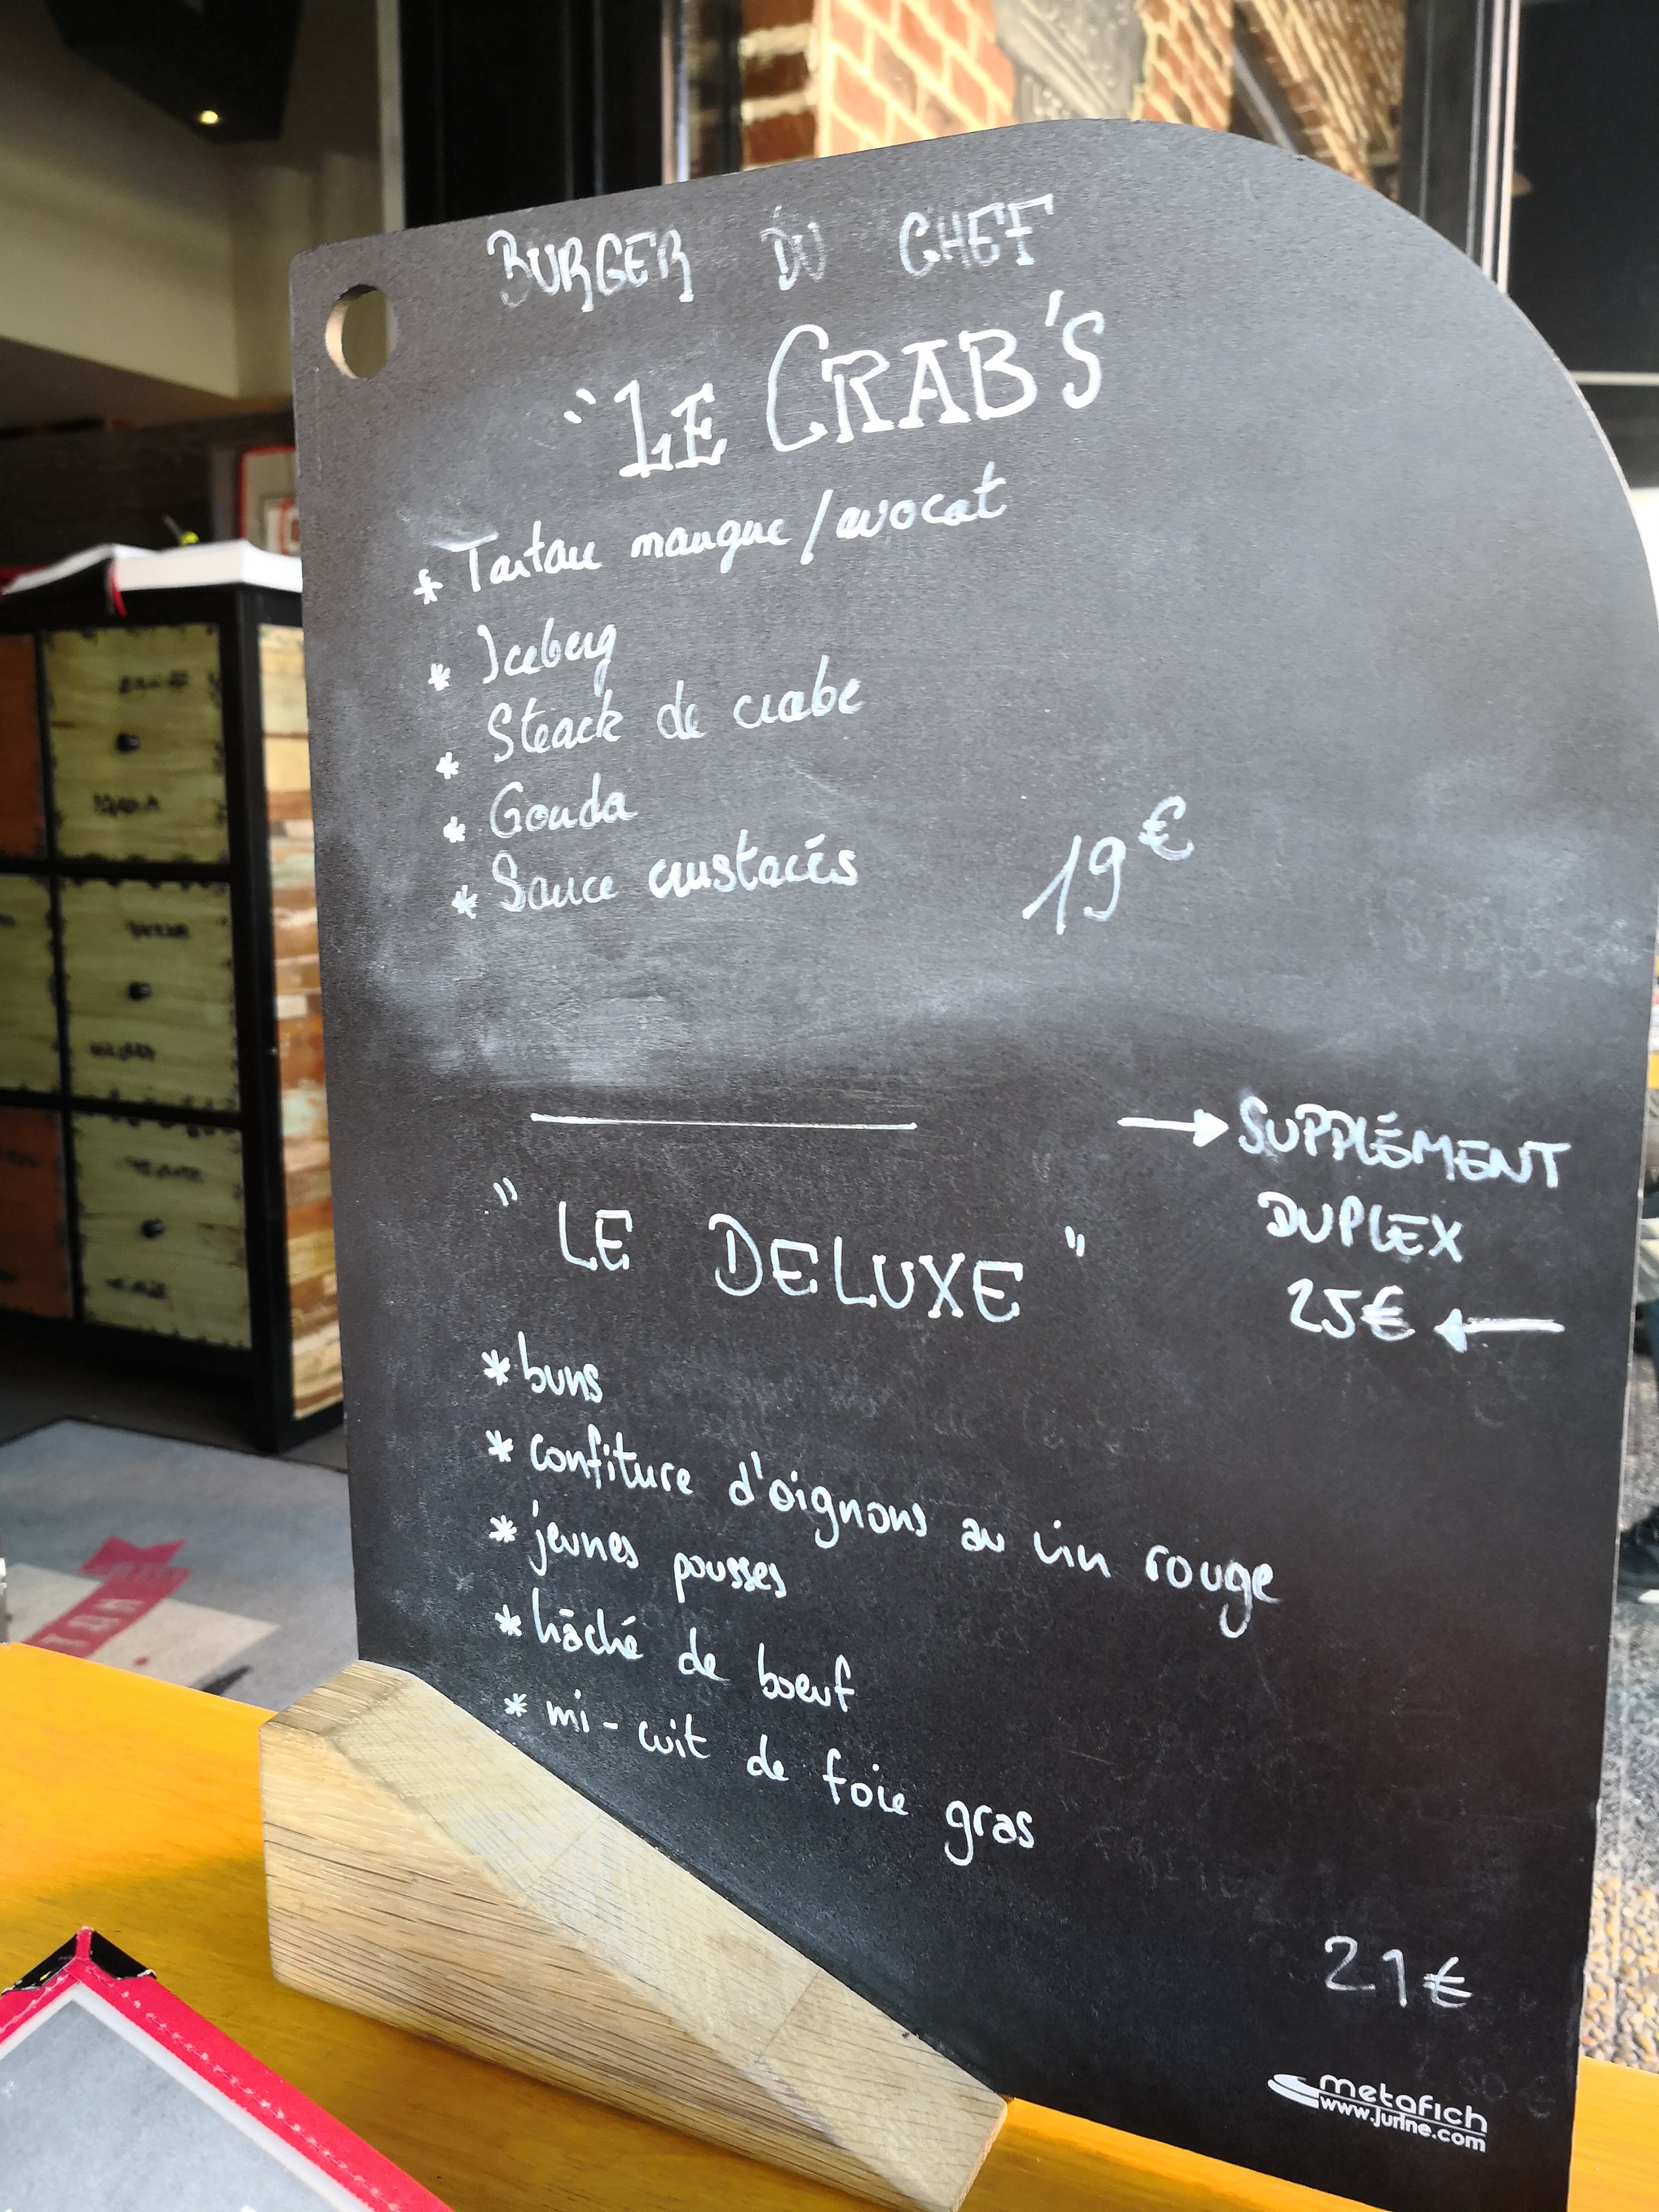 BURGER DU CHEF
"LE CRAB'S
* Tartare mangue/avocat
* Iceberg
* Steack de crabe
* Gouda
* Sauce crustacés
19€
→ SUPPLÉMENT
DUPLEX
25€ ←
"LE DELUXE"
* buns
* confiture d'oignons au vin rouge
* jeunes pousses
* hâché de boeuf
* mi-cuit de foie gras
21€
metafich
www.jurine.com